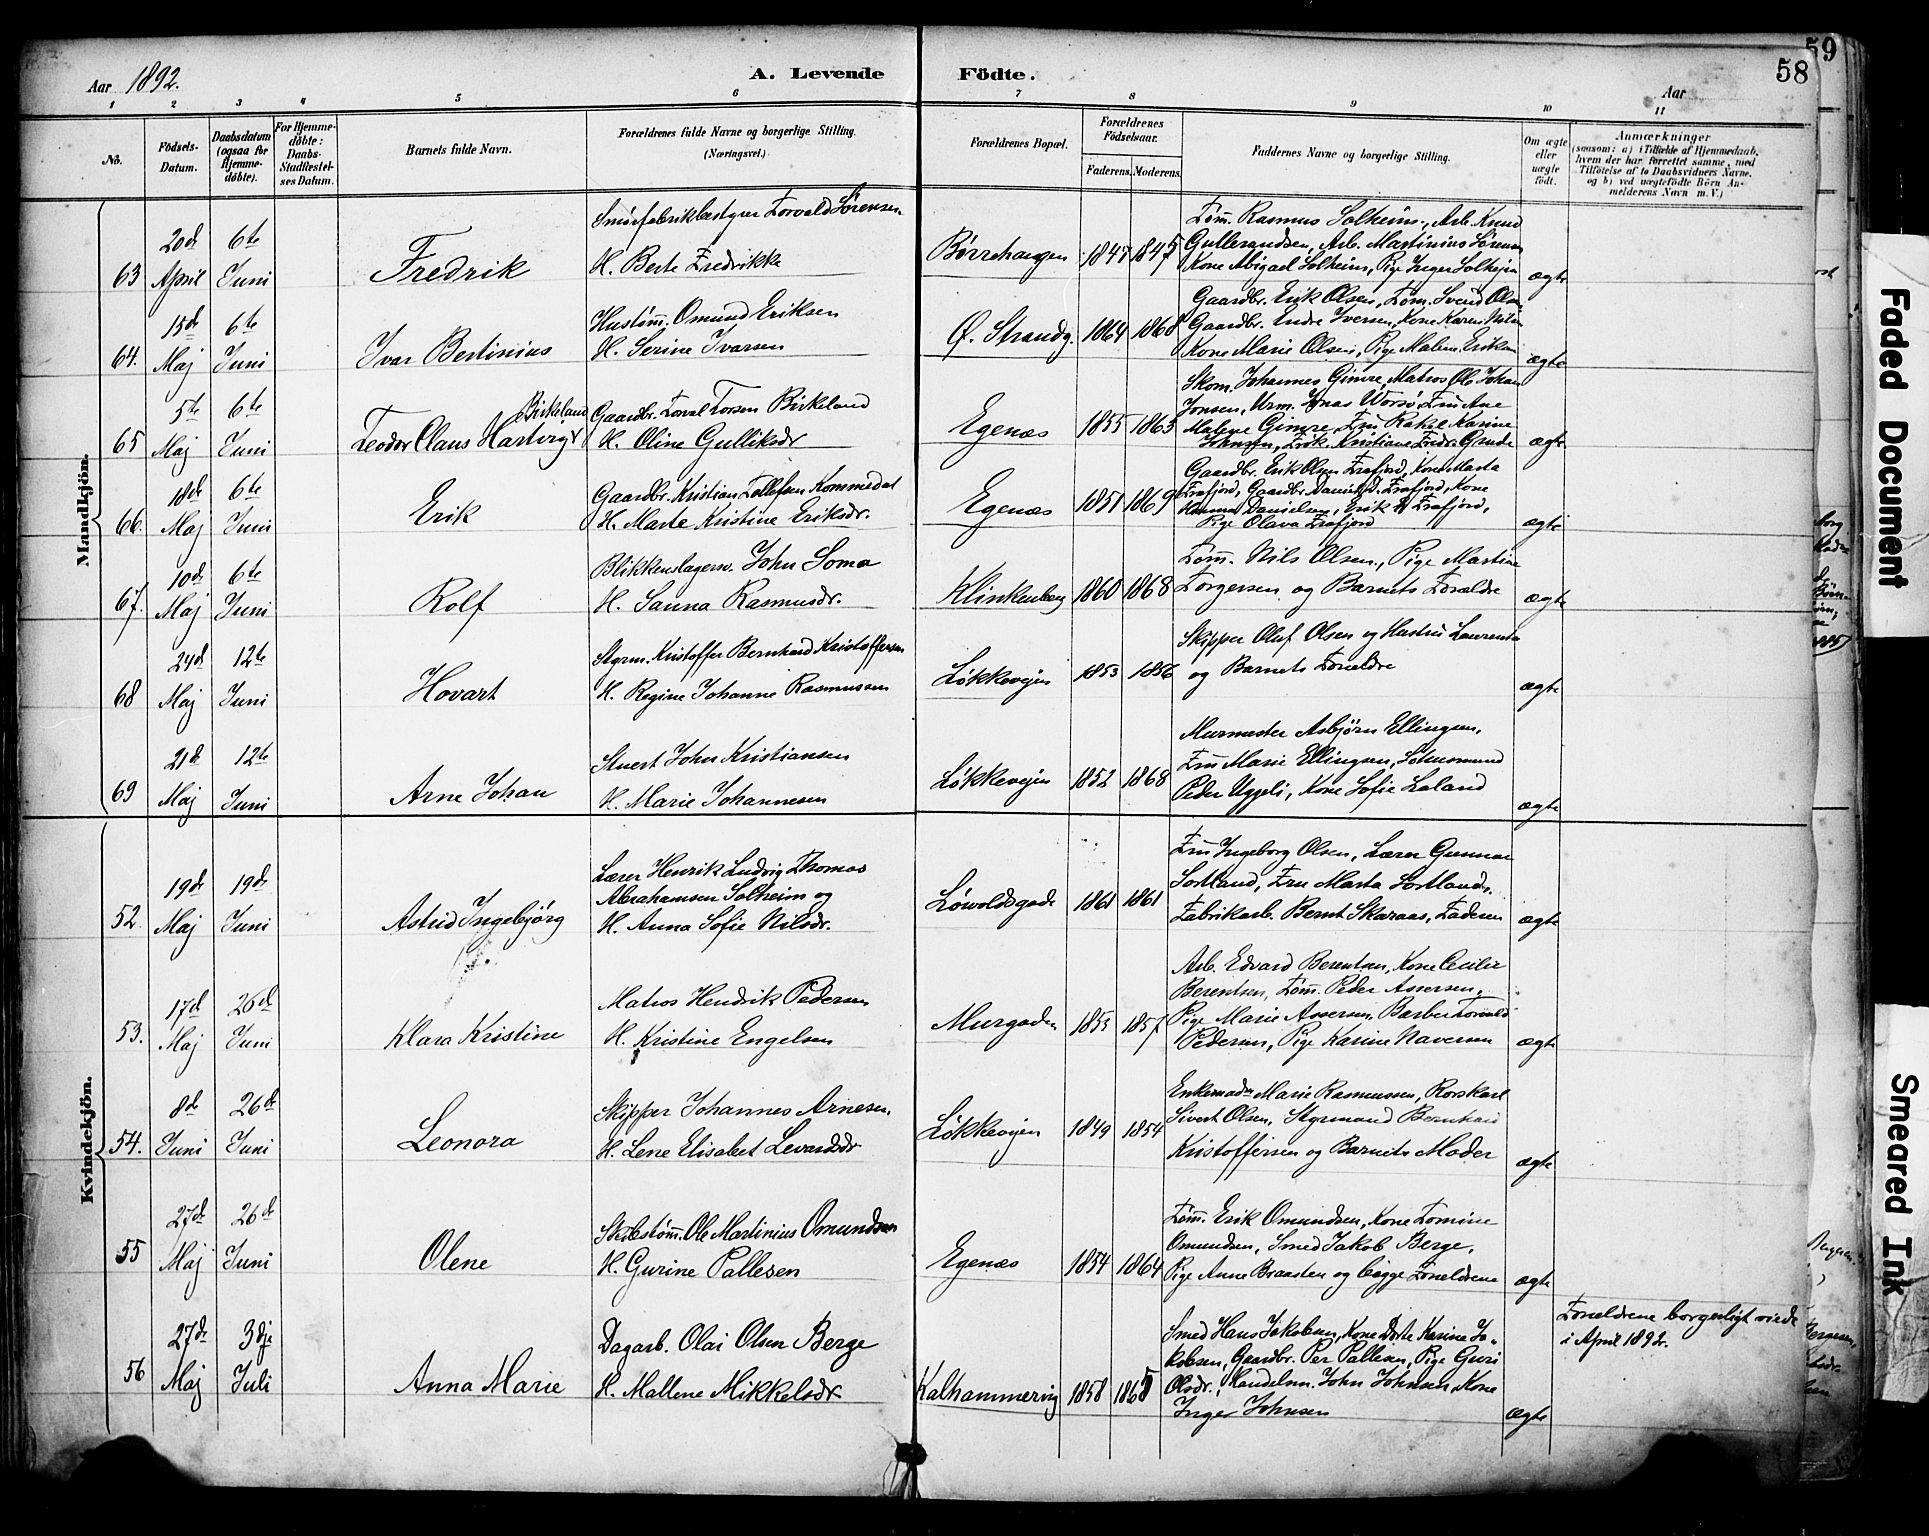 Aar 1892.
A. Levende Födte.
59
58
Aar
1 2 3 4 5 6 7 8 9 10 11
No.
Födsels-Datum.
Daabsdatum (ogsaa for Hjemme-döbte).
For Hjemme-döbte: Daabs-Stadfæstel-ses Datum.
Barnets fulde Navn.
Forældrenes fulde Navne og borgerlige Stilling.
(Næringsvei.)
Forældrenes Bopæl.
Forældrenes Födselsaar.
Faderens. Moderens.
Faddernes Navne og borgerlige Stilling.
Om ægte eller uægte födt.
Anmærkninger
(saasom: a) i Tilfælde af Hjemmedaab, hvem der har forrettet samme, med Tilföielse af to Daabsvidners Navne, og b) ved uægtefödte Börn An-melderens Navn m. V.)
Mandkjön.
63 20de April 6te Juni
Fredrik
Smörfabrikbestyrer Torvald Sörensen
H. Berte Fredrikke
Börrehaugen 1847 1845
Töm. Rasmus Solheim, Arb. Knud
Gulleransdsen, Arb. Martinius Sörensen
Kone Abigael Solheim, Pige Inger Solheim
ægte
64. 15de Maj 6te Juni
Ivar Bertinius
Hustöm. Omund Eriksen
H. Serine Ivarsen
Ø. Strandg. 1864 1868
Gaardbr. Erik Olsen, Töm. Svend Olsen
Gaardbr. Endre Iversen, Kone Karen
Kone Marie Olsen, Pige Malene Eriksen
ægte
65 5te Maj 6te Juni
Teodor Claus Hartvig Birkeland
Gaardbr. Torval Torsen Birkeland
H. Oline Gulliksdr
Egenæs 1855 1863
Skom. Johannes Gimre, Matros Ole Johan
Jonsen, Urm. Jonas Worsö, Fru Ane
Malene Gimre, Fru Rakel Karine
Johnsen, Frök. Kristiane Fredr. Gande
ægte
66. 18de Maj 6te Juni
Erik
Gaardbr. Kristian Tollefsen Kommedal
H. Marte Kristine Eriksdr.
Egenæs 1851 1869
Gaardbr. Erik Olsen Frafjord, Kone Marta
Frafjord, Gaardbr. Daniel Frafjord, Kone
Hanna Danielsen, Erik Frafjord,
Pige Olava Frafjord
ægte
67. 10de Maj 6te Juni
Rolf
Blikkenslagersv. John Soma
H. Sanna Rasmusdr.
Klinkenberg 1860 1868
Töm. Nils Olsen, Pige Martine
Torgersen og Barnets Forældre
ægte
68 24de Maj 12te Juni
Hovart
Styrm. Kristoffer Bernhard Kristoffersen
H. Regine Johanne Rasmussen
Løkkevejen 1853 1856
Skipper Oluf Olsen og Hustru Laurentse
og Barnets Forældre
ægte
69 21de Maj 12te Juni
Arne Johan
Stuert John Kristiansen
H. Marie Johannesen
Løkkevejen 1852 1868
Murmester Asbjörn Ellingsen,
Fru Marie Ellingsen,
Peder, Kone Sofie Laland
ægte
Kvindekjön.
52 19de Maj 19de Juni
Astrid Ingebjörg
Lærer Henrik Ludvig Thomas
Abrahamsen Solheim og
H. Anna Sofie Nilsdr.
Løvoldsgade 1861 1861
Fru Ingeborg Olsen, Lærer Gunnar
Sortland, Fru Marta Sortland,
Fabrikarb. Bernt Skaraas, Faderen
ægte
53. 17de Maj 26de Juni
Klara Kristine
Matros Hendrik Pedersen
H. Kristine Engelsen
Murgaden 1853 1857
Arb. Edvard Berentsen, Kone Cecilie
Berentsen, Töm. Peder Assersen,
Pige Marie Assersen, Barber Torvald
Pedersen, Pige Karine Naversen
ægte
54. 8de Juni 26de Juni
Leonora
Skipper Johannes Arnesen
H. Lene Elisabet Levardsdr
Løkkevejen 1849 1854
Enkemadm Marie Rasmussen, Rorskarl
Sivert Olsen, Styrmand Bernhard
Kristoffersen og Barnets Moder
ægte
55 27de Maj 26de Juni
Olene
Skibstöm. Ole Martinius Omundsen
H. Gurine Pallesen
Egenæs 1854 1864
Töm. Erik Omundsen, Kone Tomine
Omundsen, Smed Jakob Berge,
Pige Anne Braasten og begge Forældrene
ægte
56 27de Maj 3dje Juli
Anna Marie
Dagarb. Olai Olsen Berge
H. Mallene Mikkelsdr
Kalhammervig 1858 1865
Smed Hans Jakobsen, Kone Dorte Karine Ja-
kobsen, Gaardbr. Per Pallesen, Pige Guri
Olsdr., Handelsm. John Johnsen, Kone
Inger Johnsen
ægte
Forældrene borgerligt viede
i April 1892.
Faded Document
Smeared Ink